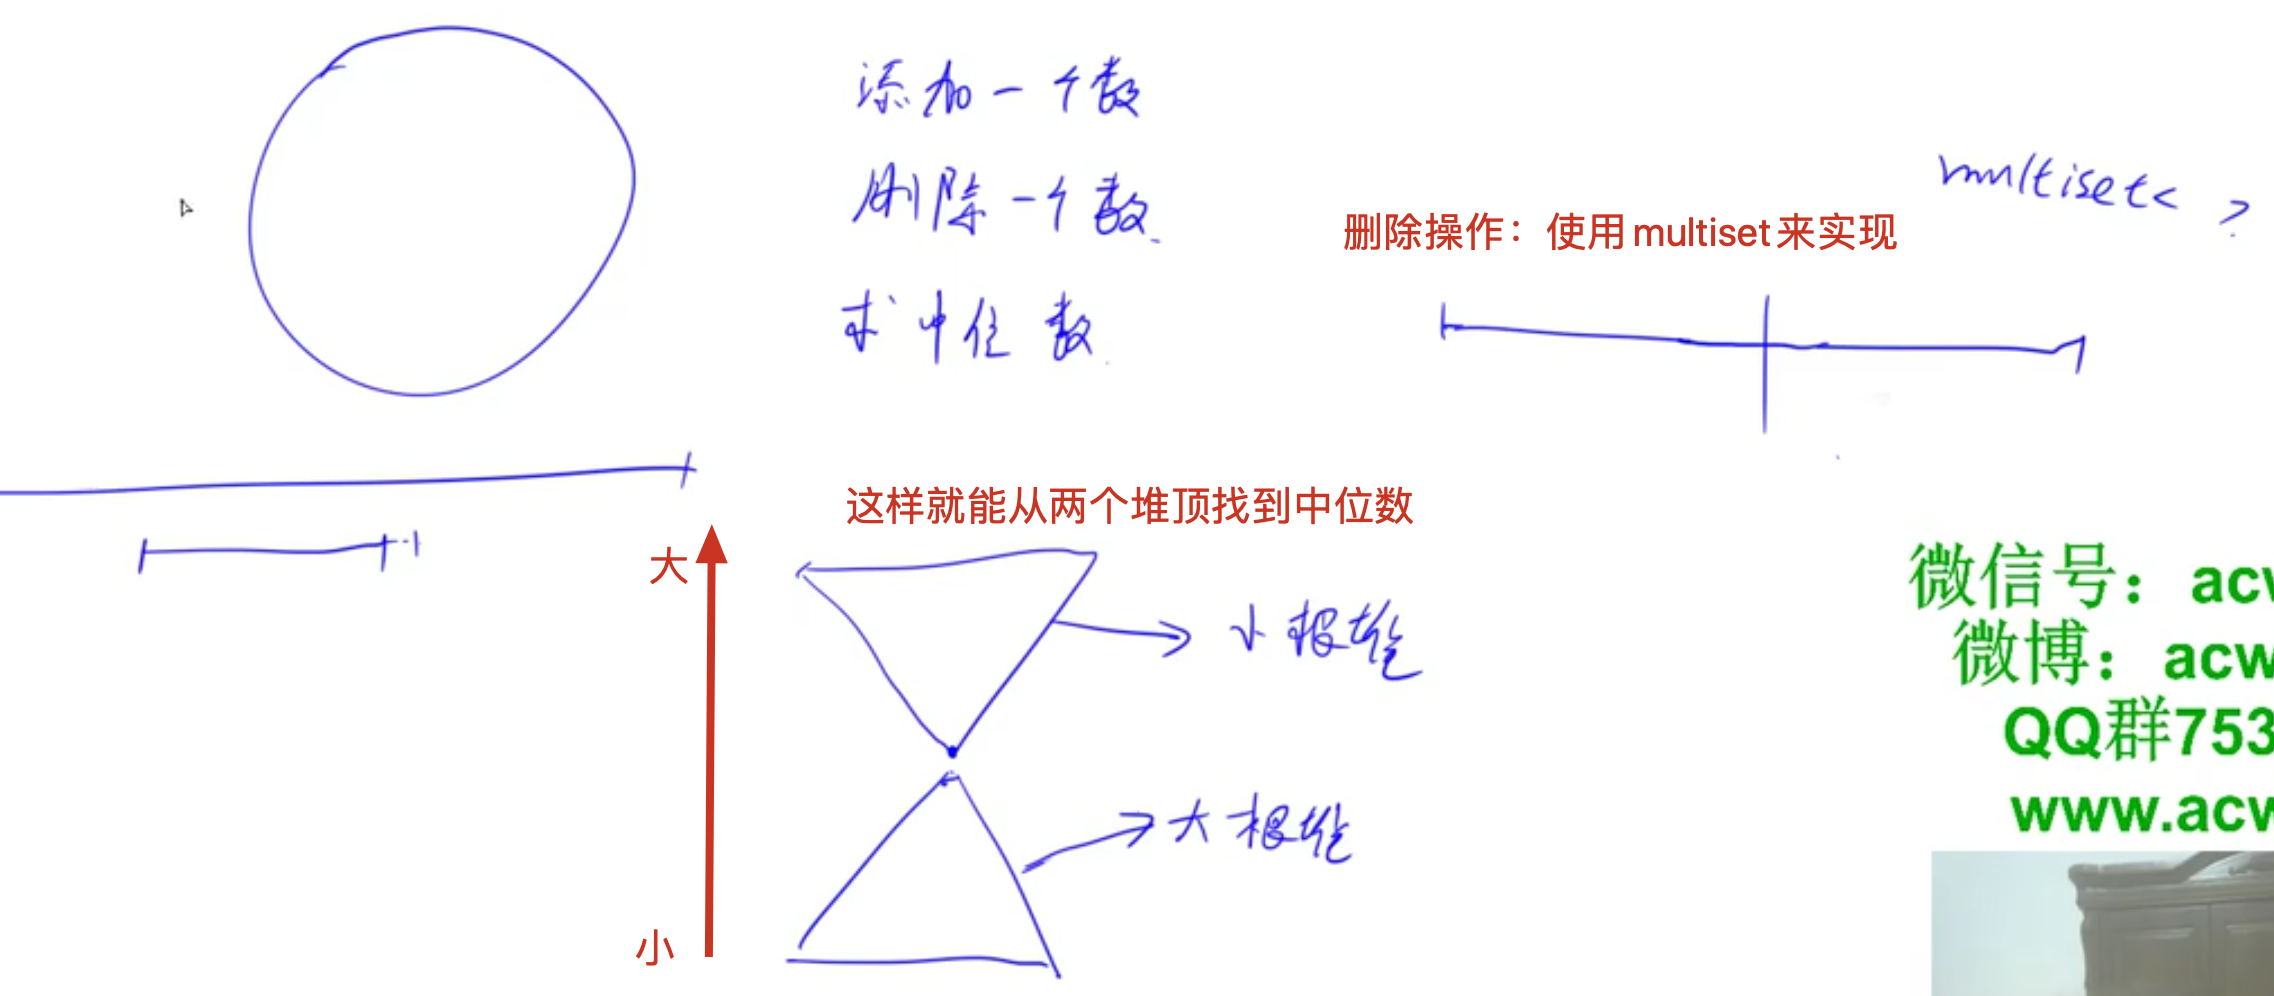 添加一个数
删除一个数
求中位数
multiset< >
删除操作：使用multiset来实现
这样就能从两个堆顶找到中位数
大
小根堆
大根堆
小
微信号：acw
微博：acw
QQ群753
www.acw